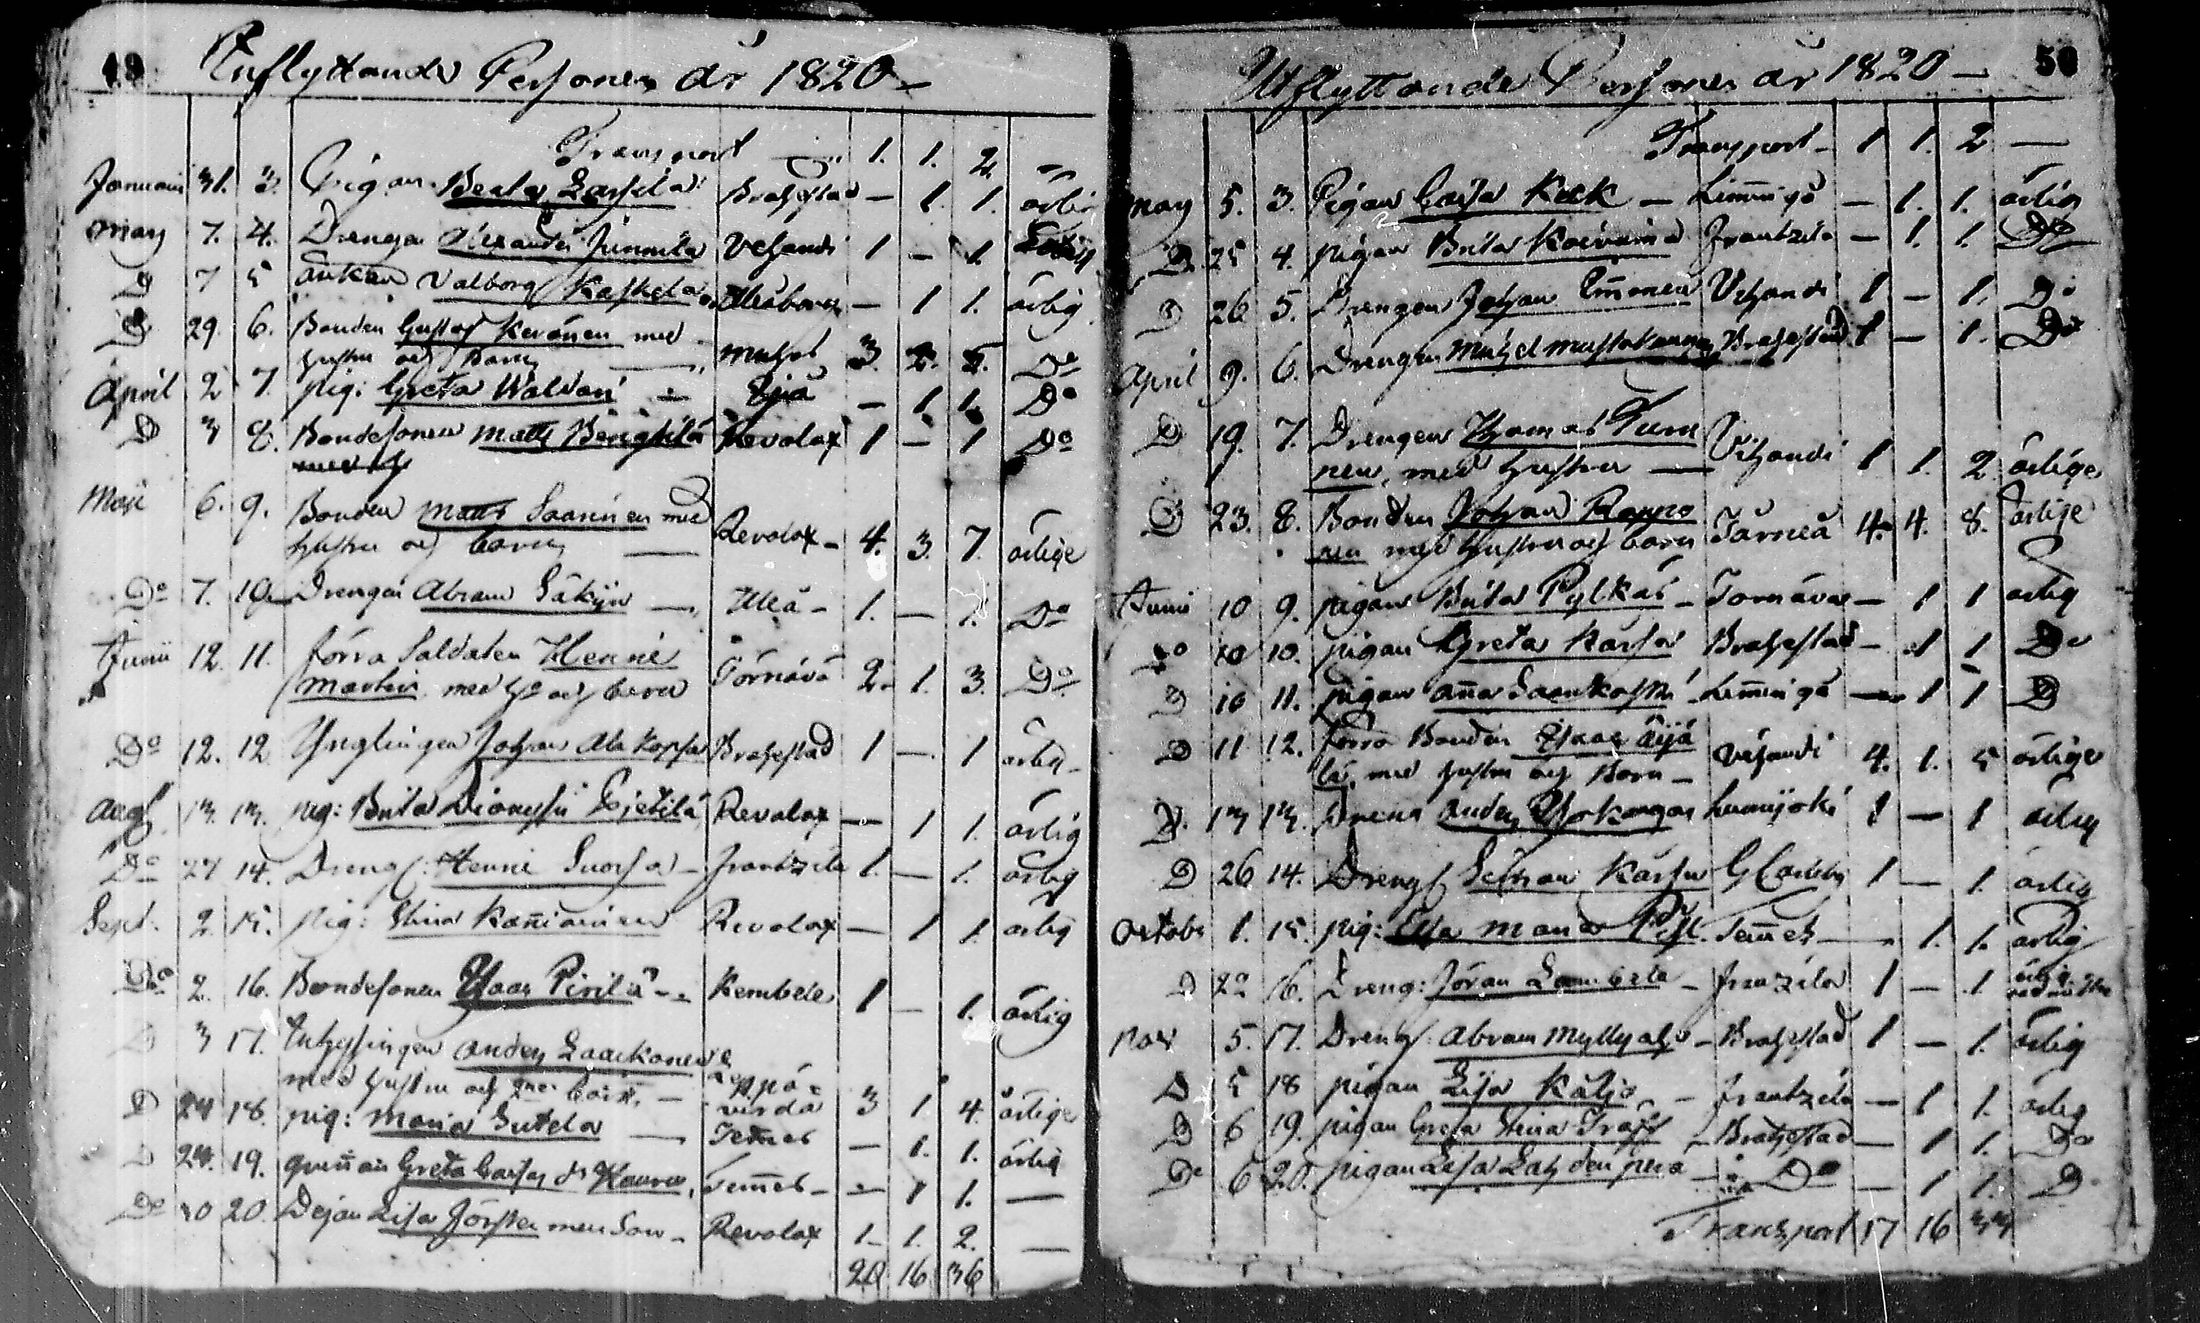 49 Inflyttande Personer år 1820
Transport 1. 1. 2.
Januari 31. 3. Pigan Beata Brahestad — 1. 1. ärlig
May 7. 4. Drengen Alexander Junnila Vehandi 1 — 1.
D 7 5 Enkan Valborg Uleåborg — 1 1. ärlig
D 29. 6. Bonden Gustaf Keränen med
hustru och barn Muhos 3. 2. 5. Do
April 2 7. pig: Greta Waldari — Ijå — 1 1. Do
D 3 8. Bondesonen Matts Bengtilä Revolax 1 — 1 Do
Maji 6. 9. Bonden Matts Saarinen med
hustru och barn — Revolax — 4. 3. 7. ärlige
Do 7. 10. Drengen Abram — Uleå — 1. — 1. Do
Junii 12. 11. förra Soldaten Henric
Martin med ho och barn Tornävä 2. 1. 3. Do
Do 12. 12 Ynglingen Johan Ala Kopsa Brahestad 1 — 1 ärlig
Aug 13. 13. pig: Brita Dionysii Revolax — 1 1. ärlig
Do 27 14. Dreng: Henric Suorsa — Frantzila 1 — 1. ärlig
Sept. 2. 15. pig: Stina Revolax — 1 1. ärlig
Do 2. 16. Bondesonen Isaac Pirilä — Kembele 1 — 1. ärlig
D 3 17. Inhysingen Anders Laackonen
med hustru och barn — 3 1. 4. ärlige
D 24 18. pig: Maria Sutela — Temmes — 1. 1. ärlig
D 24. 19. Greta Temmes — — 1 1. —
Do 30 20. Dejan Lisa med Son — Revolax 1 — 1. 2. —
20 16 36
Utflyttande Personer år 1820 — 50
Transport — 1 1. 2 —
May 5. 3. Pigan Caisa Keck — Limmingå — 1. 1. ärlig
D 25 4. pigan Brita Koivunà Frantzila — 1. 1. Do
D 26 5. Drengen Johan Immonen Vihandi 1 — 1. Do
April 9. 6. Drengen Michel Mustakangas Brahestad 1 — 1. Do
D 19. 7. Drengen Thomas Turu
nen, med hustru — Vihandi 1 1. 2 ärlige
D 23. 8. Bonden Johan
nen med hustru och barn Tärneå 4. 4. 8. ärlige
Junii 10 9. pigan Brita Pylkäs — Tornävä — 1 1 ärlig
Do 10 10. pigan Greta Karsa Brahestad — 1 1 Do
D 10 11. pigan Anna Saarikoski Limmingå — 1 1 D
D 11 12. förra Bonden Isaac Äijä
lä, med hustru och Barn — Vihandi 4. 1. 5 ärlige
D. 13 13. Dreng Anders Yrkangas Lumijoki 1 — 1 ärlig
D 26 14. Dreng Karsa G Carleby 1 — 1. ärlig
Octobr 1. 15. pig: Temmes — 1. 1. ärlig
D 22 16. Dreng: Jöran — Frazila 1 — 1.
Nov 5. 17. Dreng Abram Myllyaho — Brahestad 1 — 1. ärlig
D 5 18 pigan Lisa — Frantzila — 1 1. ärlig
D 6 19. pigan Greta Stina — Brahestad — 1 1. Do
Do 6 20. pigan Lisa Lahdenperä — Do — 1 1. D
Transport 17 16 33